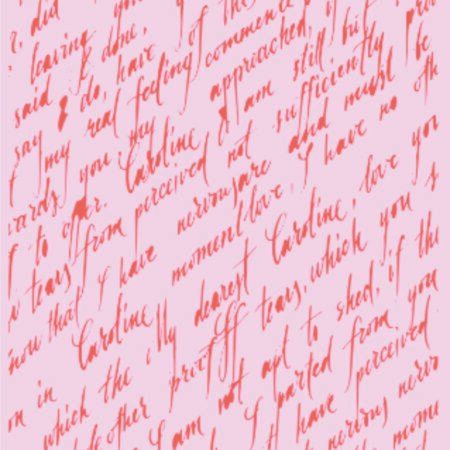 , did
leaving you
said I done,
say & do, have of the
f my real feeling commence
wards, you my approached,
f to offer. Caroline I am still if but
tears from perceived not sufficiently
nervous are and must be
now that I have moment love I have no oth
Caroline My dearest Caroline, love you
on in which the proof of tears, which you s
which other I am not apt to shed, if the
I parted from you
I have perceived
nervous nervo
mome